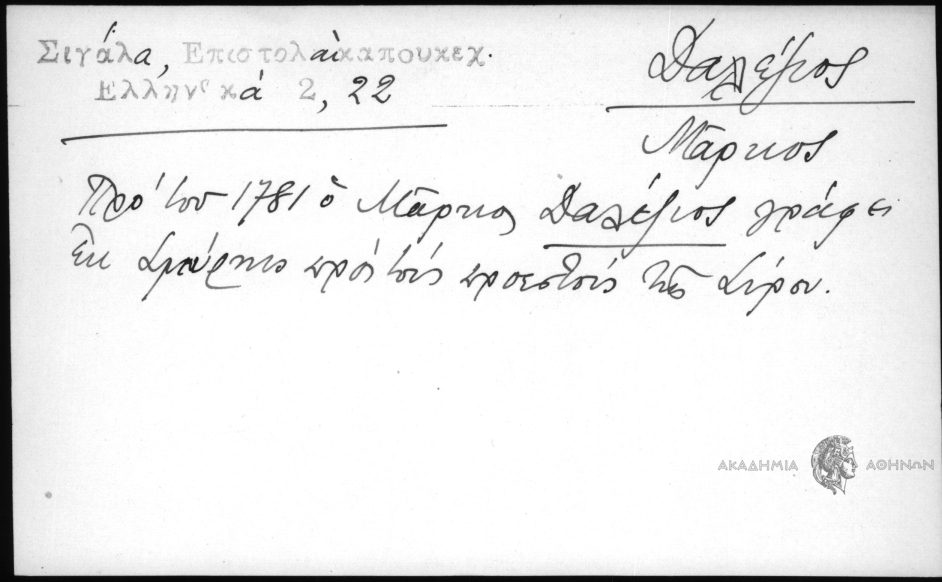 Σιγάλα, Επιστολαὶ καπουκεχ.
Ελληνικά 2, 22
Δαλέζιος
Μᾶρκος
Πρὸ τοῦ 1781 ὁ Μᾶρκος Δαλέζιος γράφει
ἐκ Σμύρνης πρὸς τοὺς προεστοὺς τῆς Σύρου.
ΑΚΑΔΗΜΙΑ ΑΘΗΝΩΝ